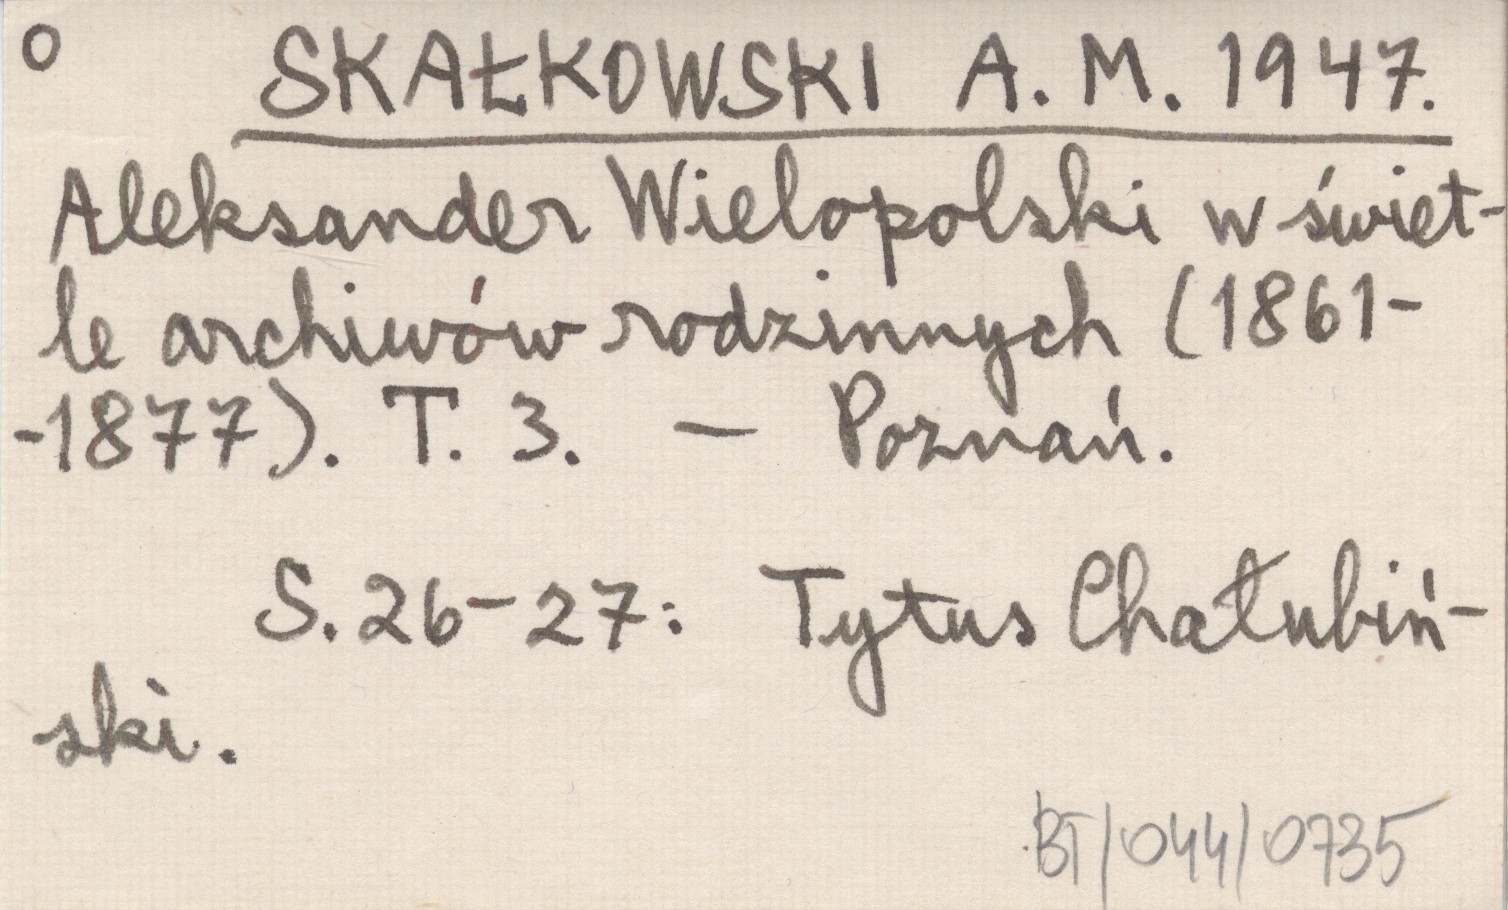 O
SKAŁKOWSKI A. M. 1947.
Aleksander Wielopolski w świet-
le archiwów rodzinnych (1861-
-1877). T. 3. — Poznań.
S. 26-27: Tytus Chałubiń-
ski.
BT/044/0735